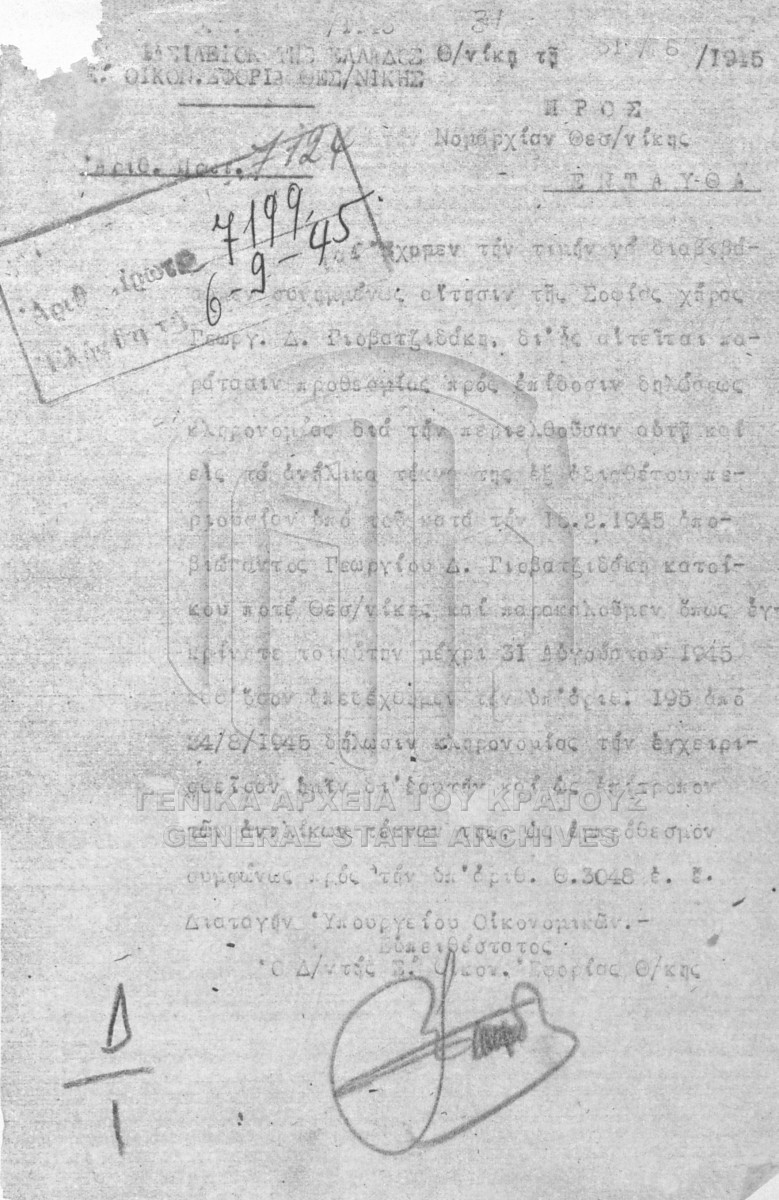 ΒΑΣΙΛΕΙΟΝ ΤΗΣ ΕΛΛΑΔΟΣ Θ/νίκη τῇ 31/8/1945
Ε! ΟΙΚΟΝ.ΕΦΟΡΙΑ ΘΕΣ/ΝΙΚΗΣ
ΠΡΟΣ
Νομαρχίαν Θεσ/νίκης
Ἀριθ. Πρωτ. 7124
ΕΝΤΑΥΘΑ
Ἀριθ Πρωτ 7199
6-9-45
ἔχομεν τήν τιμήν νά διαβιβά-
σωμεν συνημμένως αἴτησιν τῆς Σοφίας χήρας
Γεωργ. Δ. Γιοβατζιδάκη, δι'ἧς αἰτεῖται πα-
ράτασιν προθεσμίας πρός ἐπίδοσιν δηλώσεως
κληρονομίας διά τήν περιελθοῦσαν αὐτῇ καί
εἰς τά ἀνήλικα τέκνα της ἐξ ἀδιαθέτου πε-
ριουσίαν ὑπό τοῦ κατά τήν 15.2.1945 ἀπο-
βιώσαντος Γεωργίου Δ. Γιοβατζιδάκη κατοί-
κου ποτέ Θεσ/νίκης καί παρακαλοῦμεν ὅπως ἐγ-
κρίνητε τοιαύτην μέχρι 31 Αὐγούστου 1945
καθ'ὅσον ἀπεδέχθημεν τήν ὑπ'ἀριθ. 195 ἀπό
24/8/1945 δήλωσιν κληρονομίας τήν ἐγχειρι-
σθεῖσαν ἡμῖν δι'ἑαυτήν καί ὡς ἐπίτροπον
τῶν ἀνηλίκων τέκνων της, ὡς ἐμπρόθεσμον
συμφώνως πρός τήν ὑπ'ἀριθ. Θ.3048 ἐ. ἔ.
Διαταγήν Ὑπουργείου Οἰκονομικῶν.-
Εὐπειθέστατος
Ὁ Δ/ντής Ε! Οἰκον. Ἐφορίας Θ/κης
Δ
1
ΓΕΝΙΚΑ ΑΡΧΕΙΑ ΤΟΥ ΚΡΑΤΟΥΣ
GENERAL STATE ARCHIVES